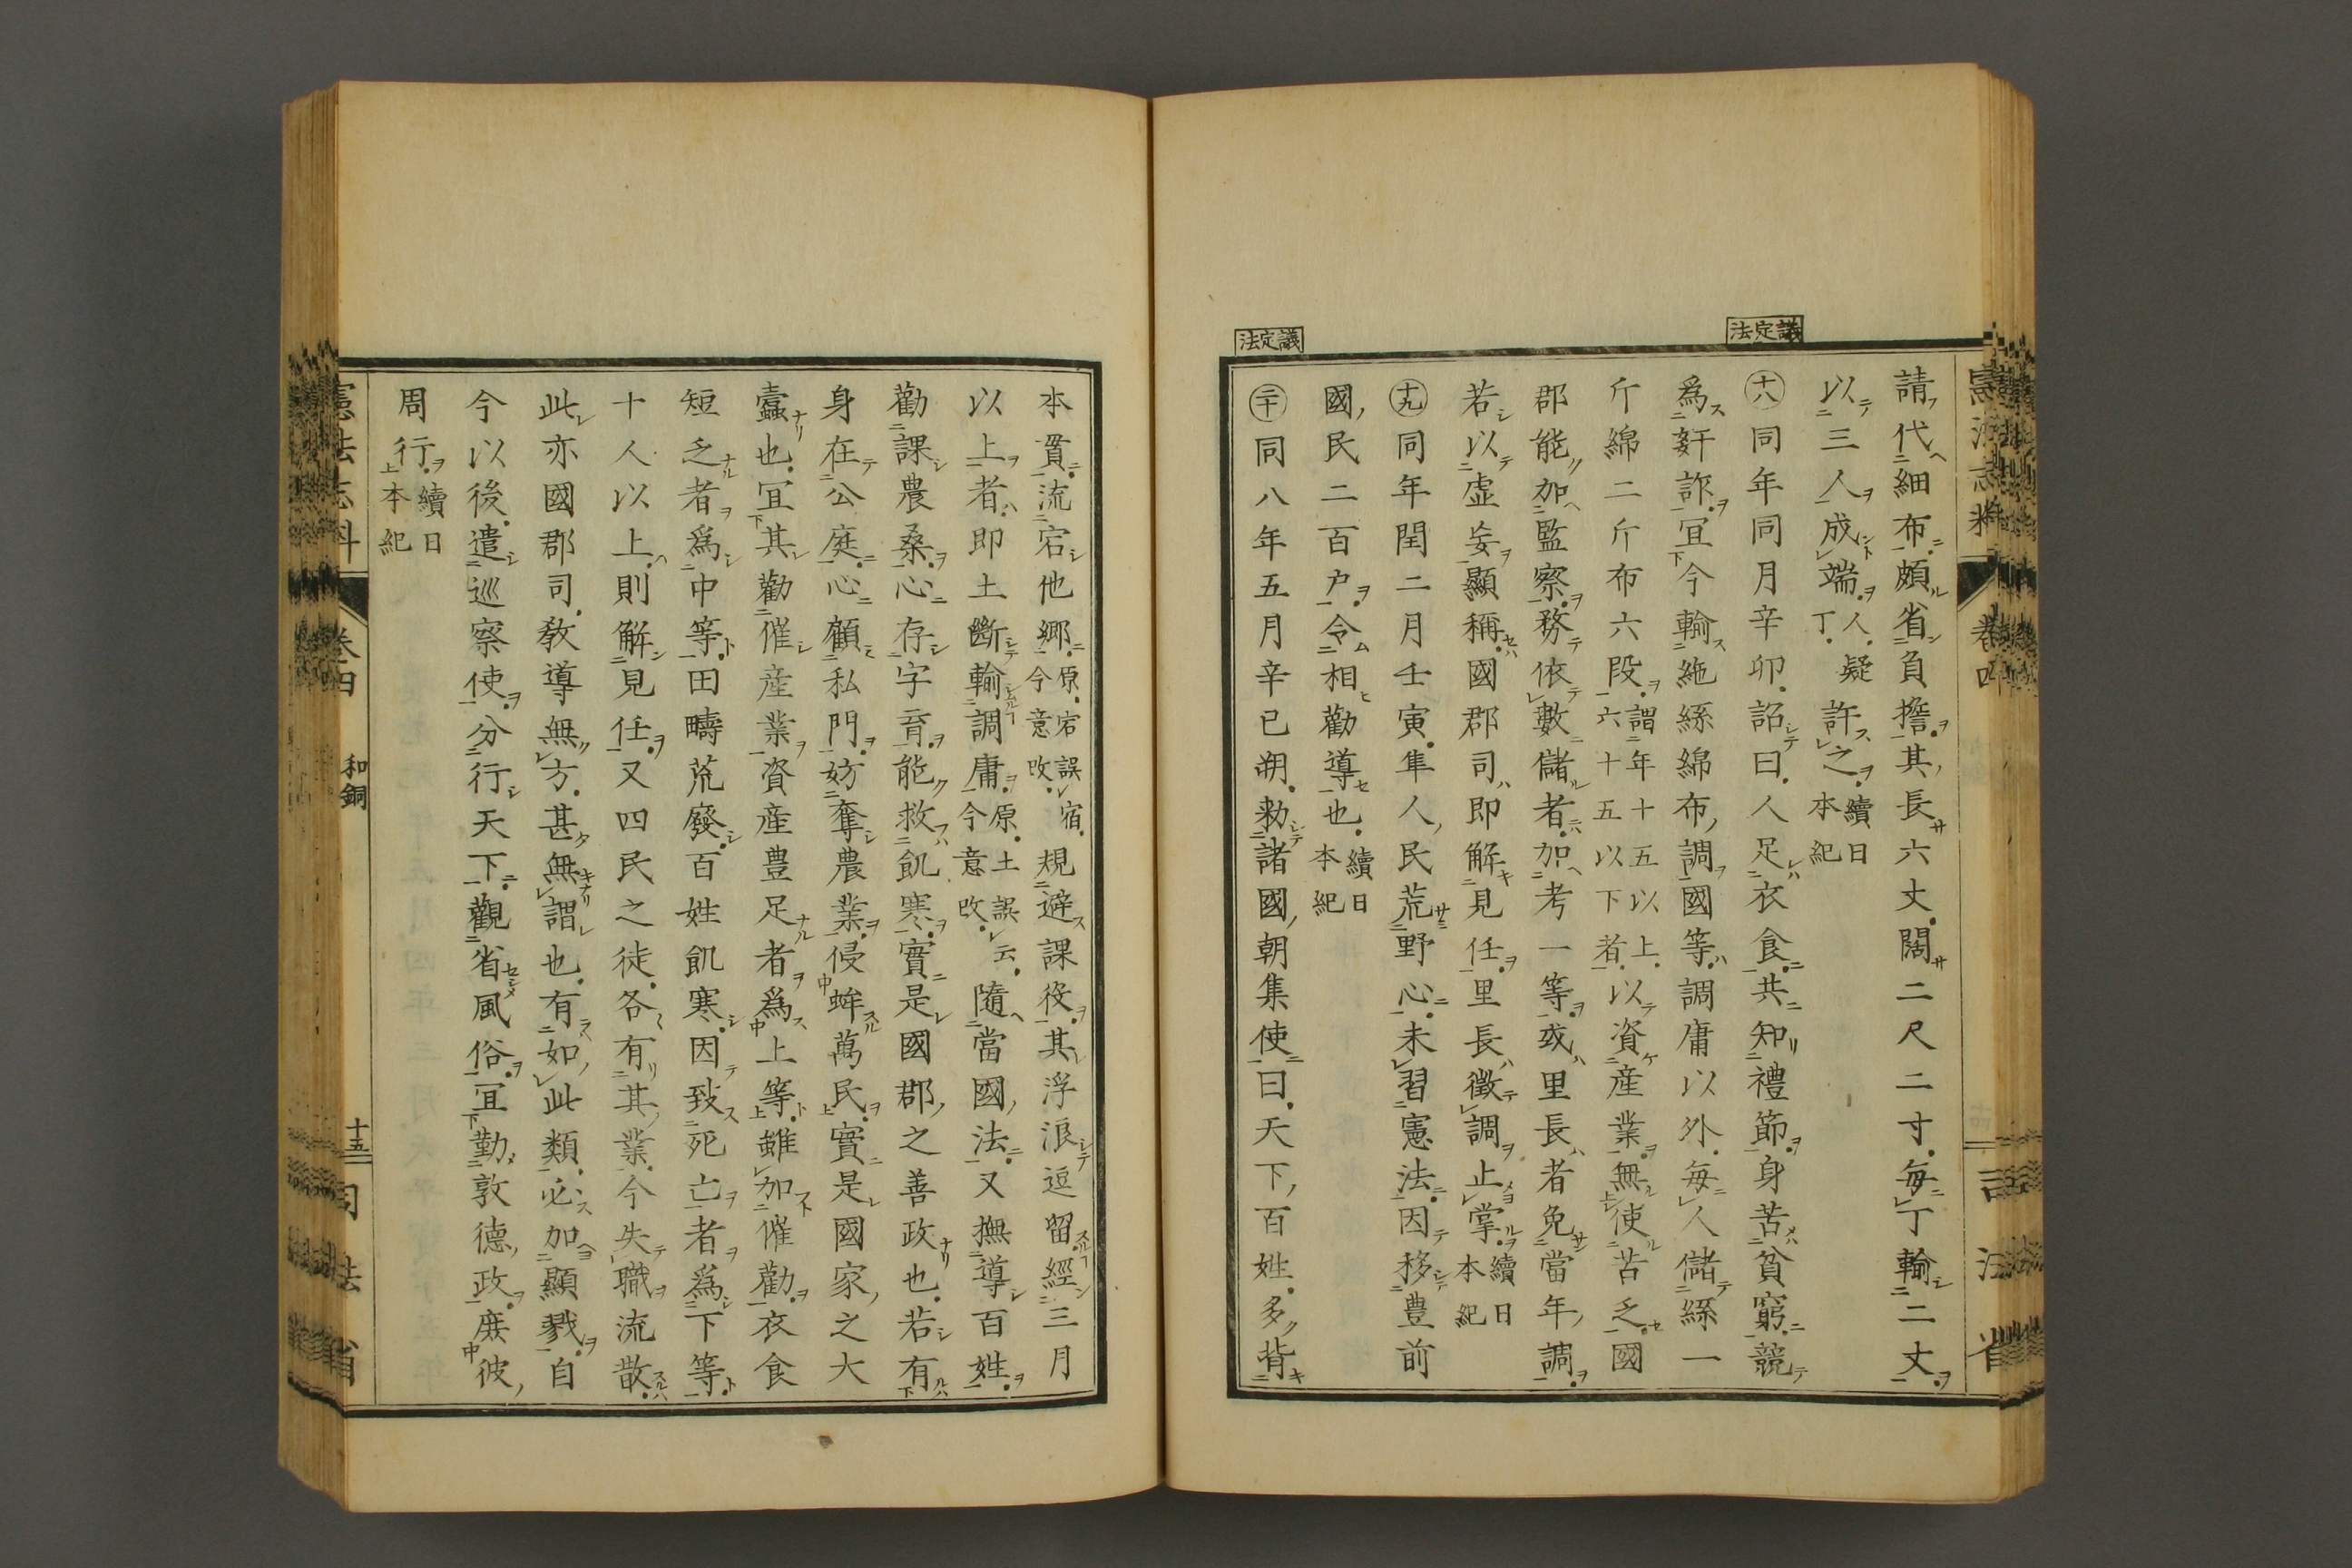 議定法
議定法
請代細布頗省負擔其長六丈闊二尺二寸毎丁輸二丈
以三人成端人丁疑許之續日本紀
十八同年同月辛卯詔曰人足衣食共知禮節身苦貧窮競
爲奸詐宜今輸絁絲綿布調國等調庸以外毎人儲絲一
斤綿二斤布六段謂年十五以上六十五以下者以資産業無使苦乏國
郡能加監察務依數儲者加考一等或里長者免當年調
若以虚妄顯稱國郡司即解見任里長徵調止掌續日本紀
十九同年閏二月壬寅隼人民荒野心未習憲法因移豊前
國民二百户令相勸導也續日本紀
二十同八年五月辛巳朔勅諸國朝集使曰天下百姓多背
本貫流宕他郷原宕誤宿今意改規避課役其浮浪逗留經三月
以上者即土斷輸調庸原土誤云今意改隨當國法又撫導百姓
勸課農桑心存字育能救飢寒實是國郡之善政也若有
身在公庭心顧私門妨奪農業侵蛑萬民實是國家之大
蠹也宜其勸催産業資産豊足者爲上等雖加催勸衣食
短乏者爲中等田疇荒廢百姓飢寒因致死亡者爲下等
十人以上則解見任又四民之徒各有其業今失職流散
此亦國郡司教導無方甚無謂也有如此類必加顯戮自
今以後遣巡察使分行天下觀省風俗宜勤敦德政庶彼
周行續日本紀
憲法志料 卷四 和銅 十五 司法省